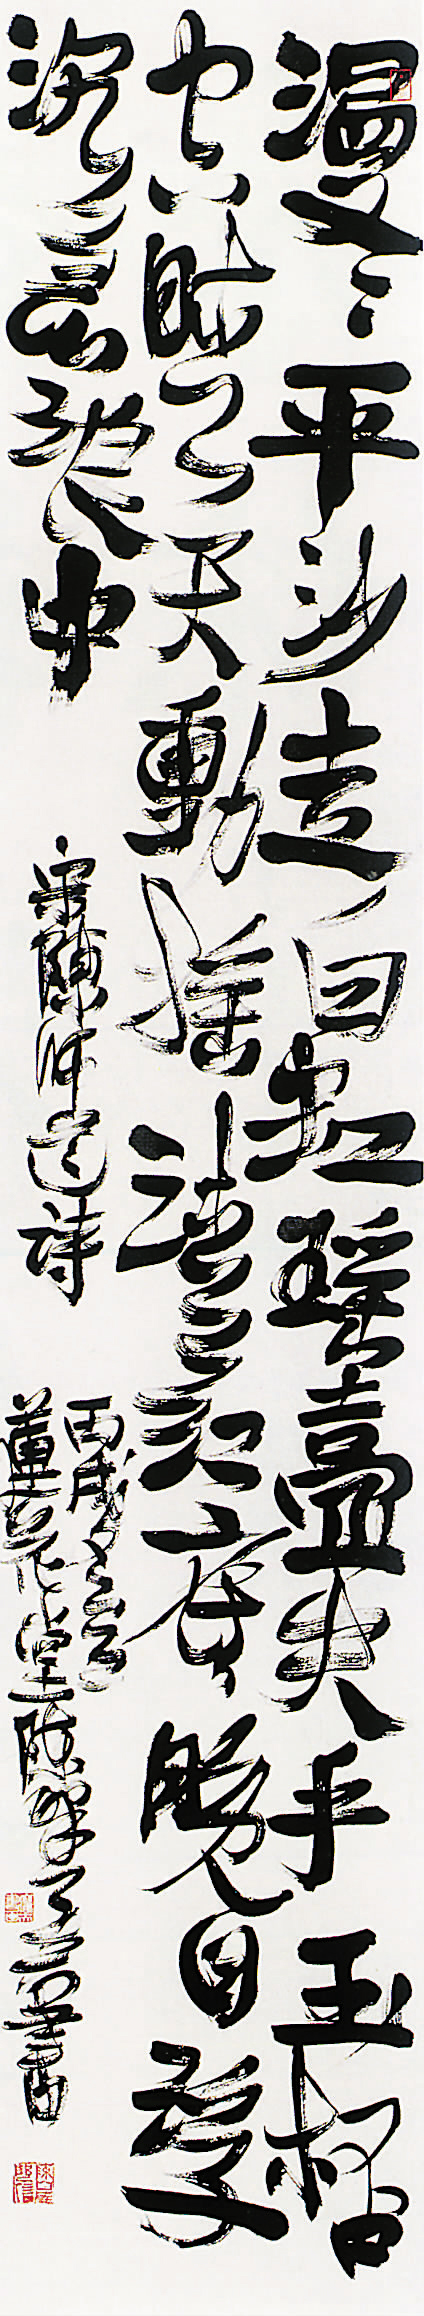 漫々平沙走白虹瑶臺失手玉杯
空晴天動搖清江底晚日浮
沉急浪中
宋陳師道詩
丙戌
蓮花堂陳 書